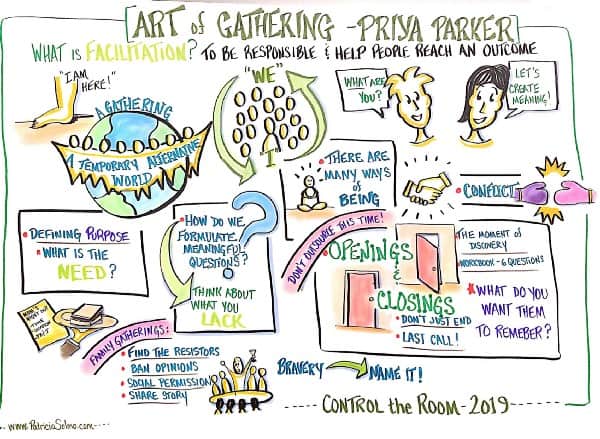 ART of GATHERING - PRIYA PARKER
WHAT IS FACILITATION? TO BE RESPONSIBLE & HELP PEOPLE REACH AN OUTCOME
"I AM HERE!"
A GATHERING
A TEMPORARY ALTERNATIVE WORLD
"WE"
"I"
WHAT ARE
YOU?
LET'S
CREATE
MEANING!
• THERE ARE
MANY WAYS
OF
BEING
• CONFLICT
• DEFINING PURPOSE
• WHAT IS THE
NEED?
• HOW DO WE
FORMULATE
MEANINGFUL
QUESTIONS?
THINK ABOUT
WHAT YOU
LACK
DON'T OUTSOURCE THIS TIME!
• OPENINGS
&
• CLOSINGS
• DON'T JUST END
• LAST CALL!
THE MOMENT of
DISCOVERY
WORKBOOK - 6 QUESTIONS
* WHAT DO YOU
WANT THEM
TO REMEBER?
FAMILY GATHERINGS:
• FIND THE RESISTORS
• BAN OPINIONS
• SOCIAL PERMISSION
• SHARE STORY
BRAVERY
NAME IT!
CONTROL the ROOM - 2019
www.PatriciaSelmo.com